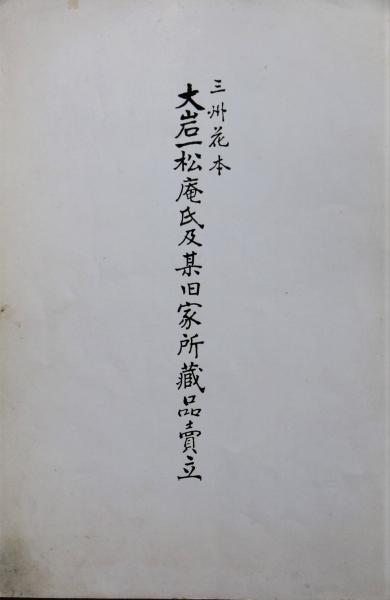 三州花本
大岩一松庵氏及某旧家所藏品賣立